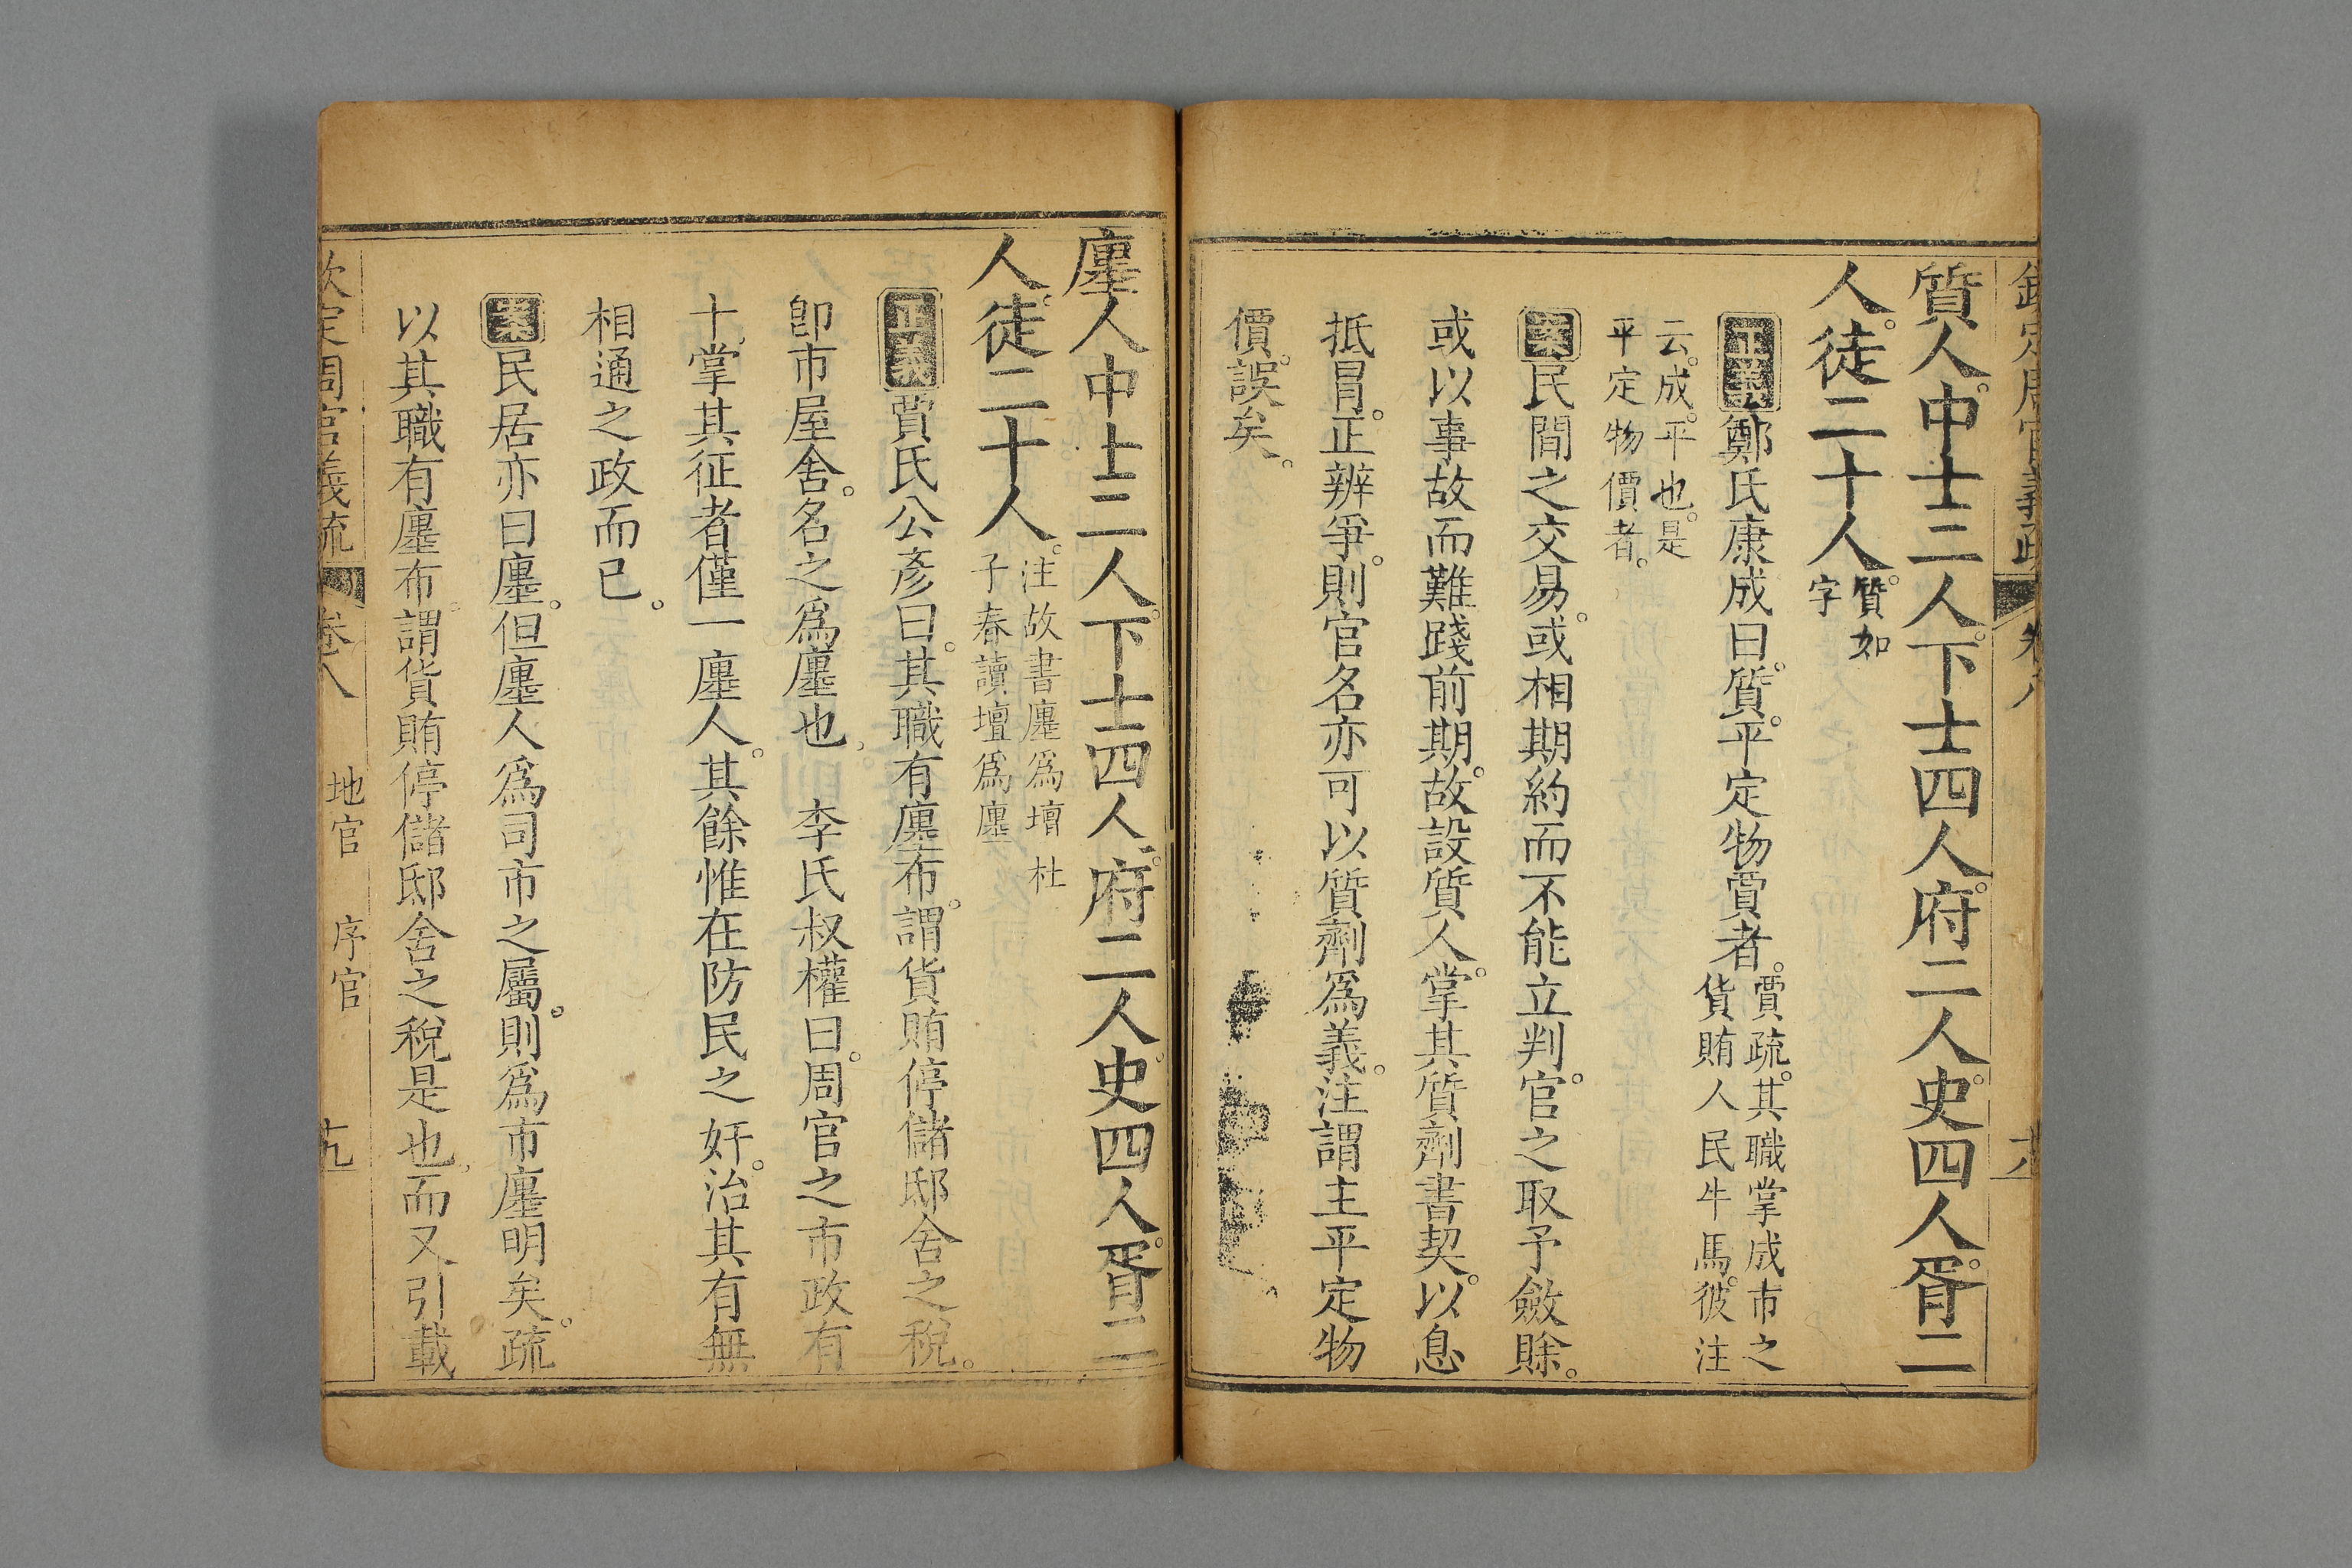 欽定周官義疏 卷八 六
質人中士二人。下士四人。府二人。史四人。胥二
人。徒二十人。質如
字
正義鄭氏康成曰。質。平定物賈者。賈疏。其職掌成市之
貨賄人民牛馬。彼注
云。成。平也。是
平定物價者。
案民間之交易。或相期約而不能立判。官之取予斂賒。
或以事故而難踐前期。故設質人。掌其質劑書契。以息
抵冒。正辨爭。則官名亦可以質劑爲義。注謂主平定物
價。誤矣。
廛人中士二人。下士四人。府二人。史四人。胥二
人。徒二十人。注故書廛爲壇杜
子春讀壇爲廛
正義賈氏公彥曰。其職有廛布。謂貨賄停儲邸舍之稅。
卽市屋舍。名之爲廛也。 李氏叔權曰。周官之市政有
十。掌其征者僅一廛人。其餘惟在防民之奸。治其有無
相通之政而已。
案民居亦曰廛。但廛人爲司市之屬。則爲市廛明矣。疏
以其職有廛布。謂貨賄停儲邸舍之稅是也。而又引載
欽定周官義疏 卷八 地官 序官 九